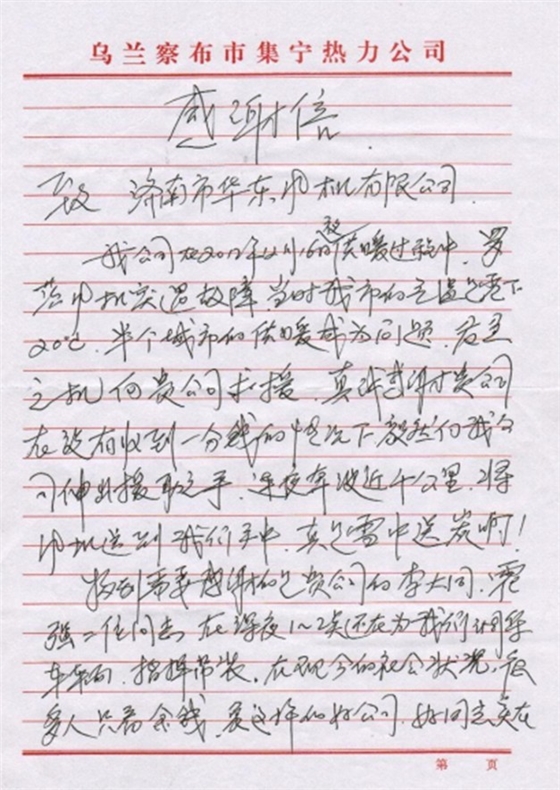 乌兰察布市集宁热力公司
感谢信
致 济南市华东风机有限公司
我公司在2012年12月16日夜供暖过程中，罗
茨风机突遇故障，当时我市的气温是零下
20℃，半个城市的供暖成为问题，危急
之机向贵公司求援，真诚感谢贵公司
在没有收到一分钱的情况下毅然向我公
司伸出援助之手，连夜奔波近千公里，将
风机送到我们手中，真是雪中送炭啊！
特别需要感谢的是贵公司的李大同、
强二位同志，在深夜1~2点还在为我们
车辆，指挥吊装，在现今的社会状况，很
多人只看金钱，是这样的好公司、好同志实在
第 页